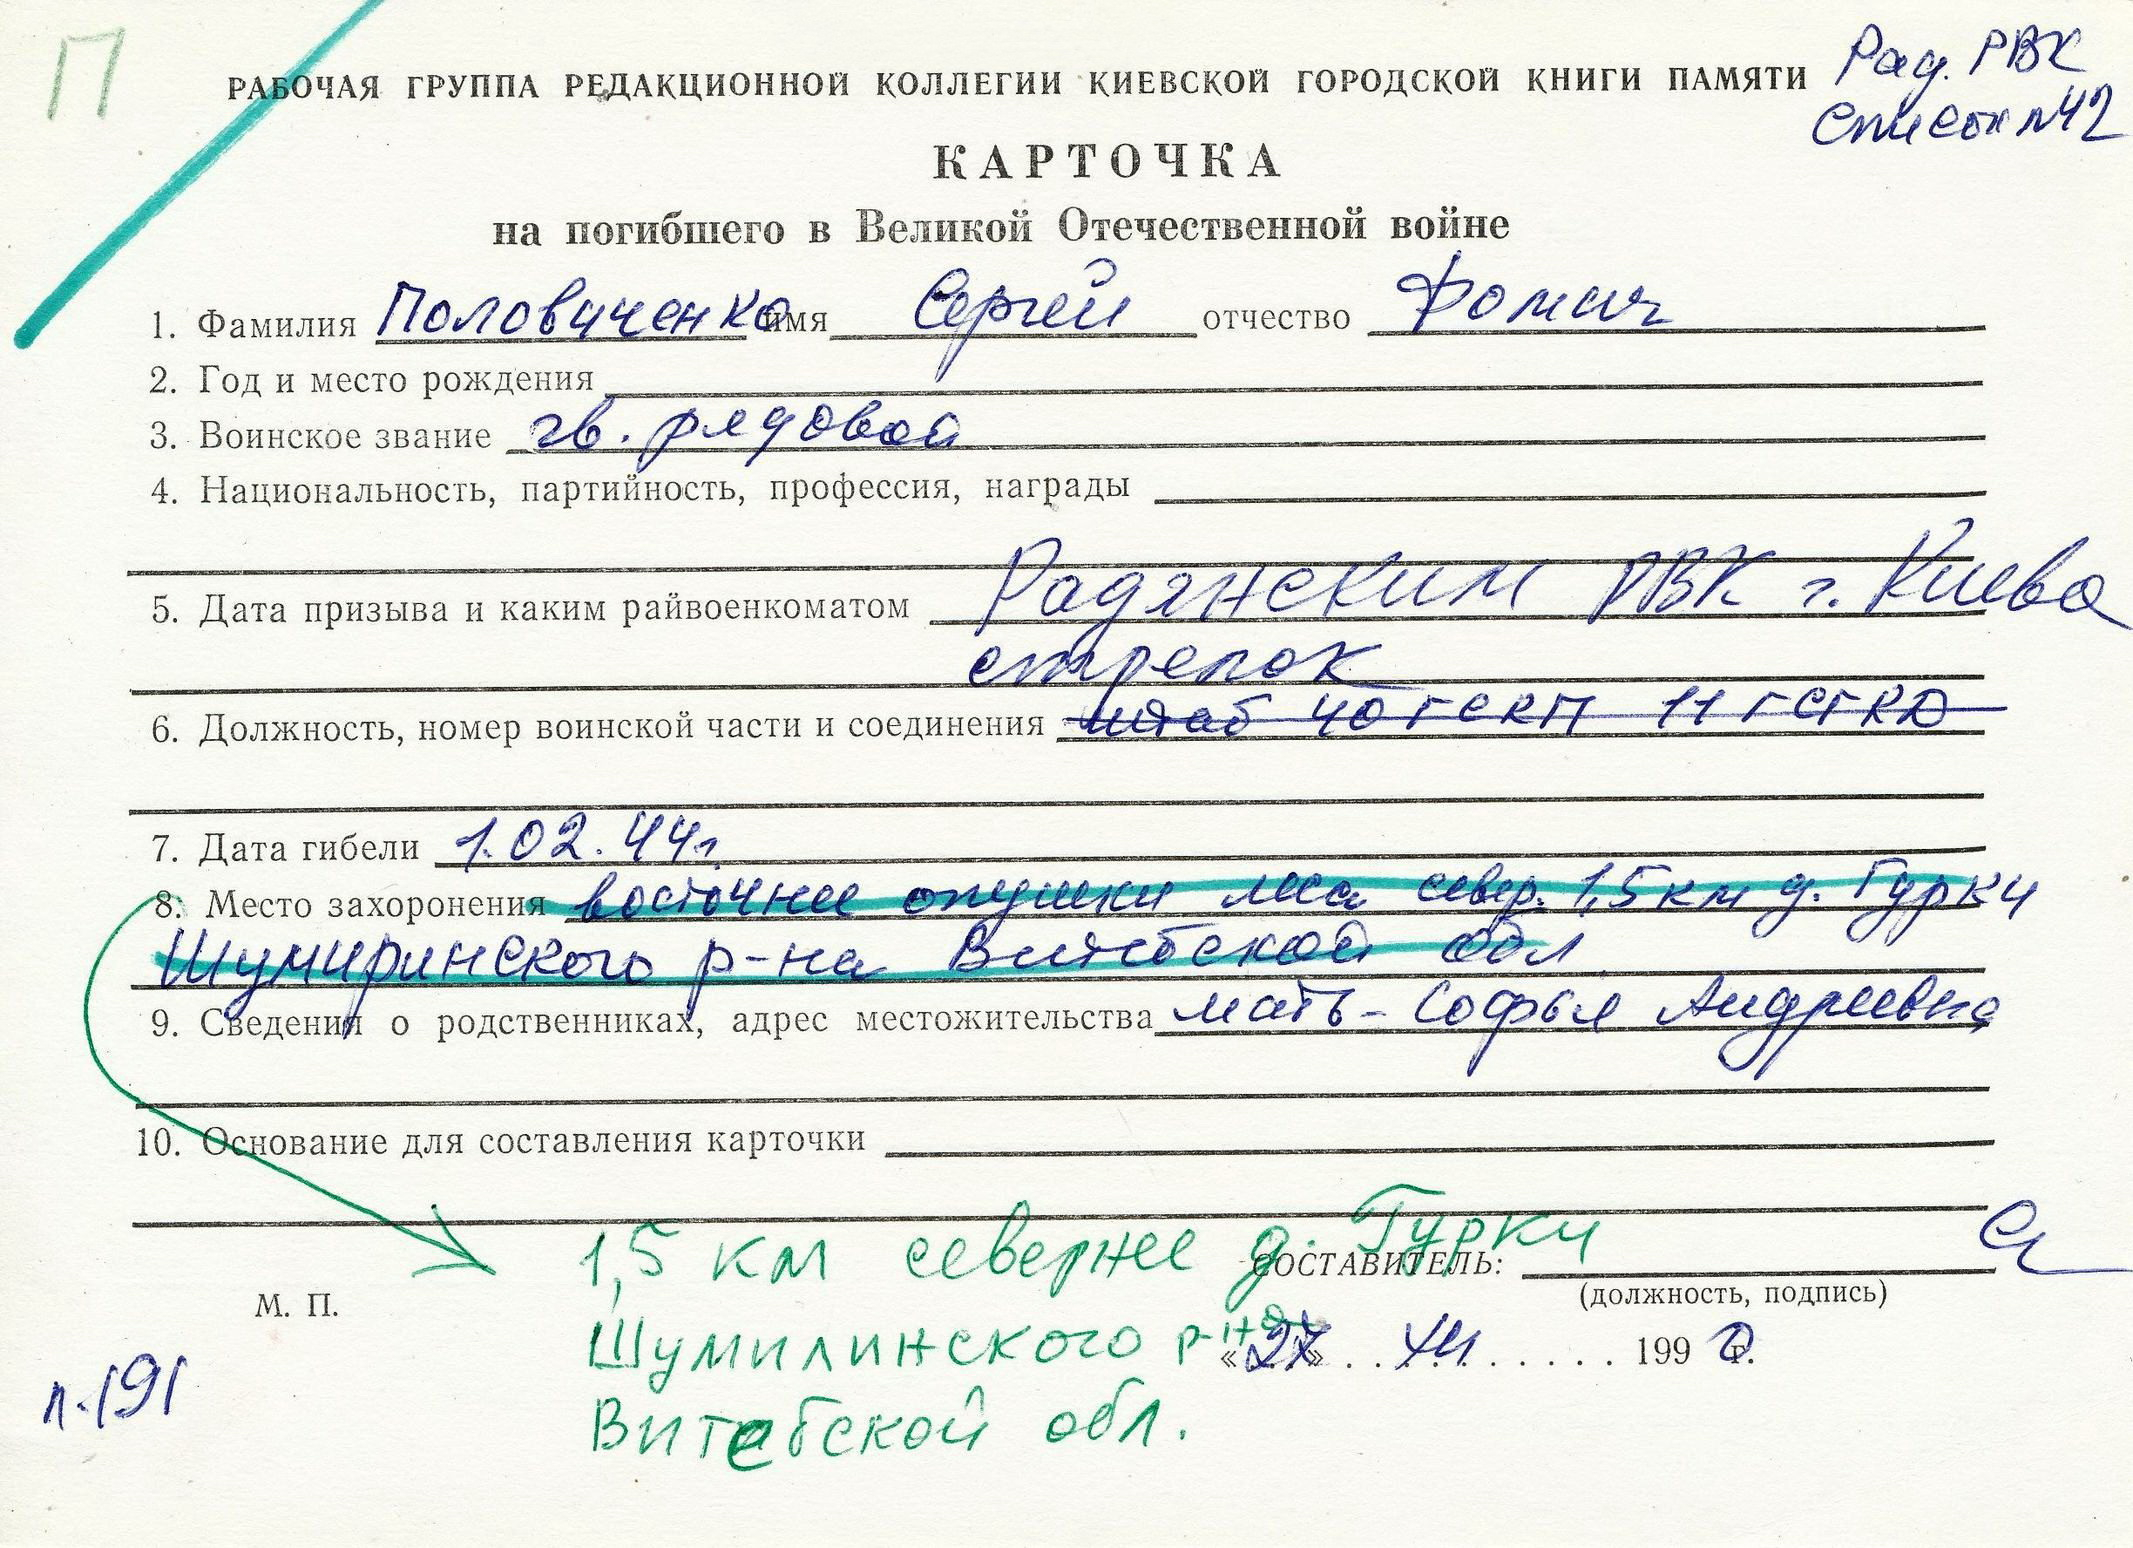 П
Рад. РВК
Список №42
РАБОЧАЯ ГРУППА РЕДАКЦИОННОЙ КОЛЛЕГИИ КИЕВСКОЙ ГОРОДСКОЙ КНИГИ ПАМЯТИ
КАРТОЧКА
на погибшего в Великой Отечественной войне
1. Фамилия Половиченко имя Сергей отчество Фомич
2. Год и место рождения
3. Воинское звание гв. рядовой
4. Национальность, партийность, профессия, награды
5. Дата призыва и каким райвоенкоматом Радянским РВК г. Киева
стрелок
6. Должность, номер воинской части и соединения штаб 40 гскп 11 гсгкд
7. Дата гибели 1.02.44г
8. Место захоронения восточнее опушки леса север. 1,5 км д. Гурки
Шумиринского р-на Витебской обл.
9. Сведения о родственниках, адрес местожительства мать - Софья Андреевна
10. Основание для составления карточки
1,5 км севернее д. Гурки
СОСТАВИТЕЛЬ:
(должность, подпись)
М. П.
Шумилинского р-на
«27» XII 1990 г.
п-191
Витебской обл.